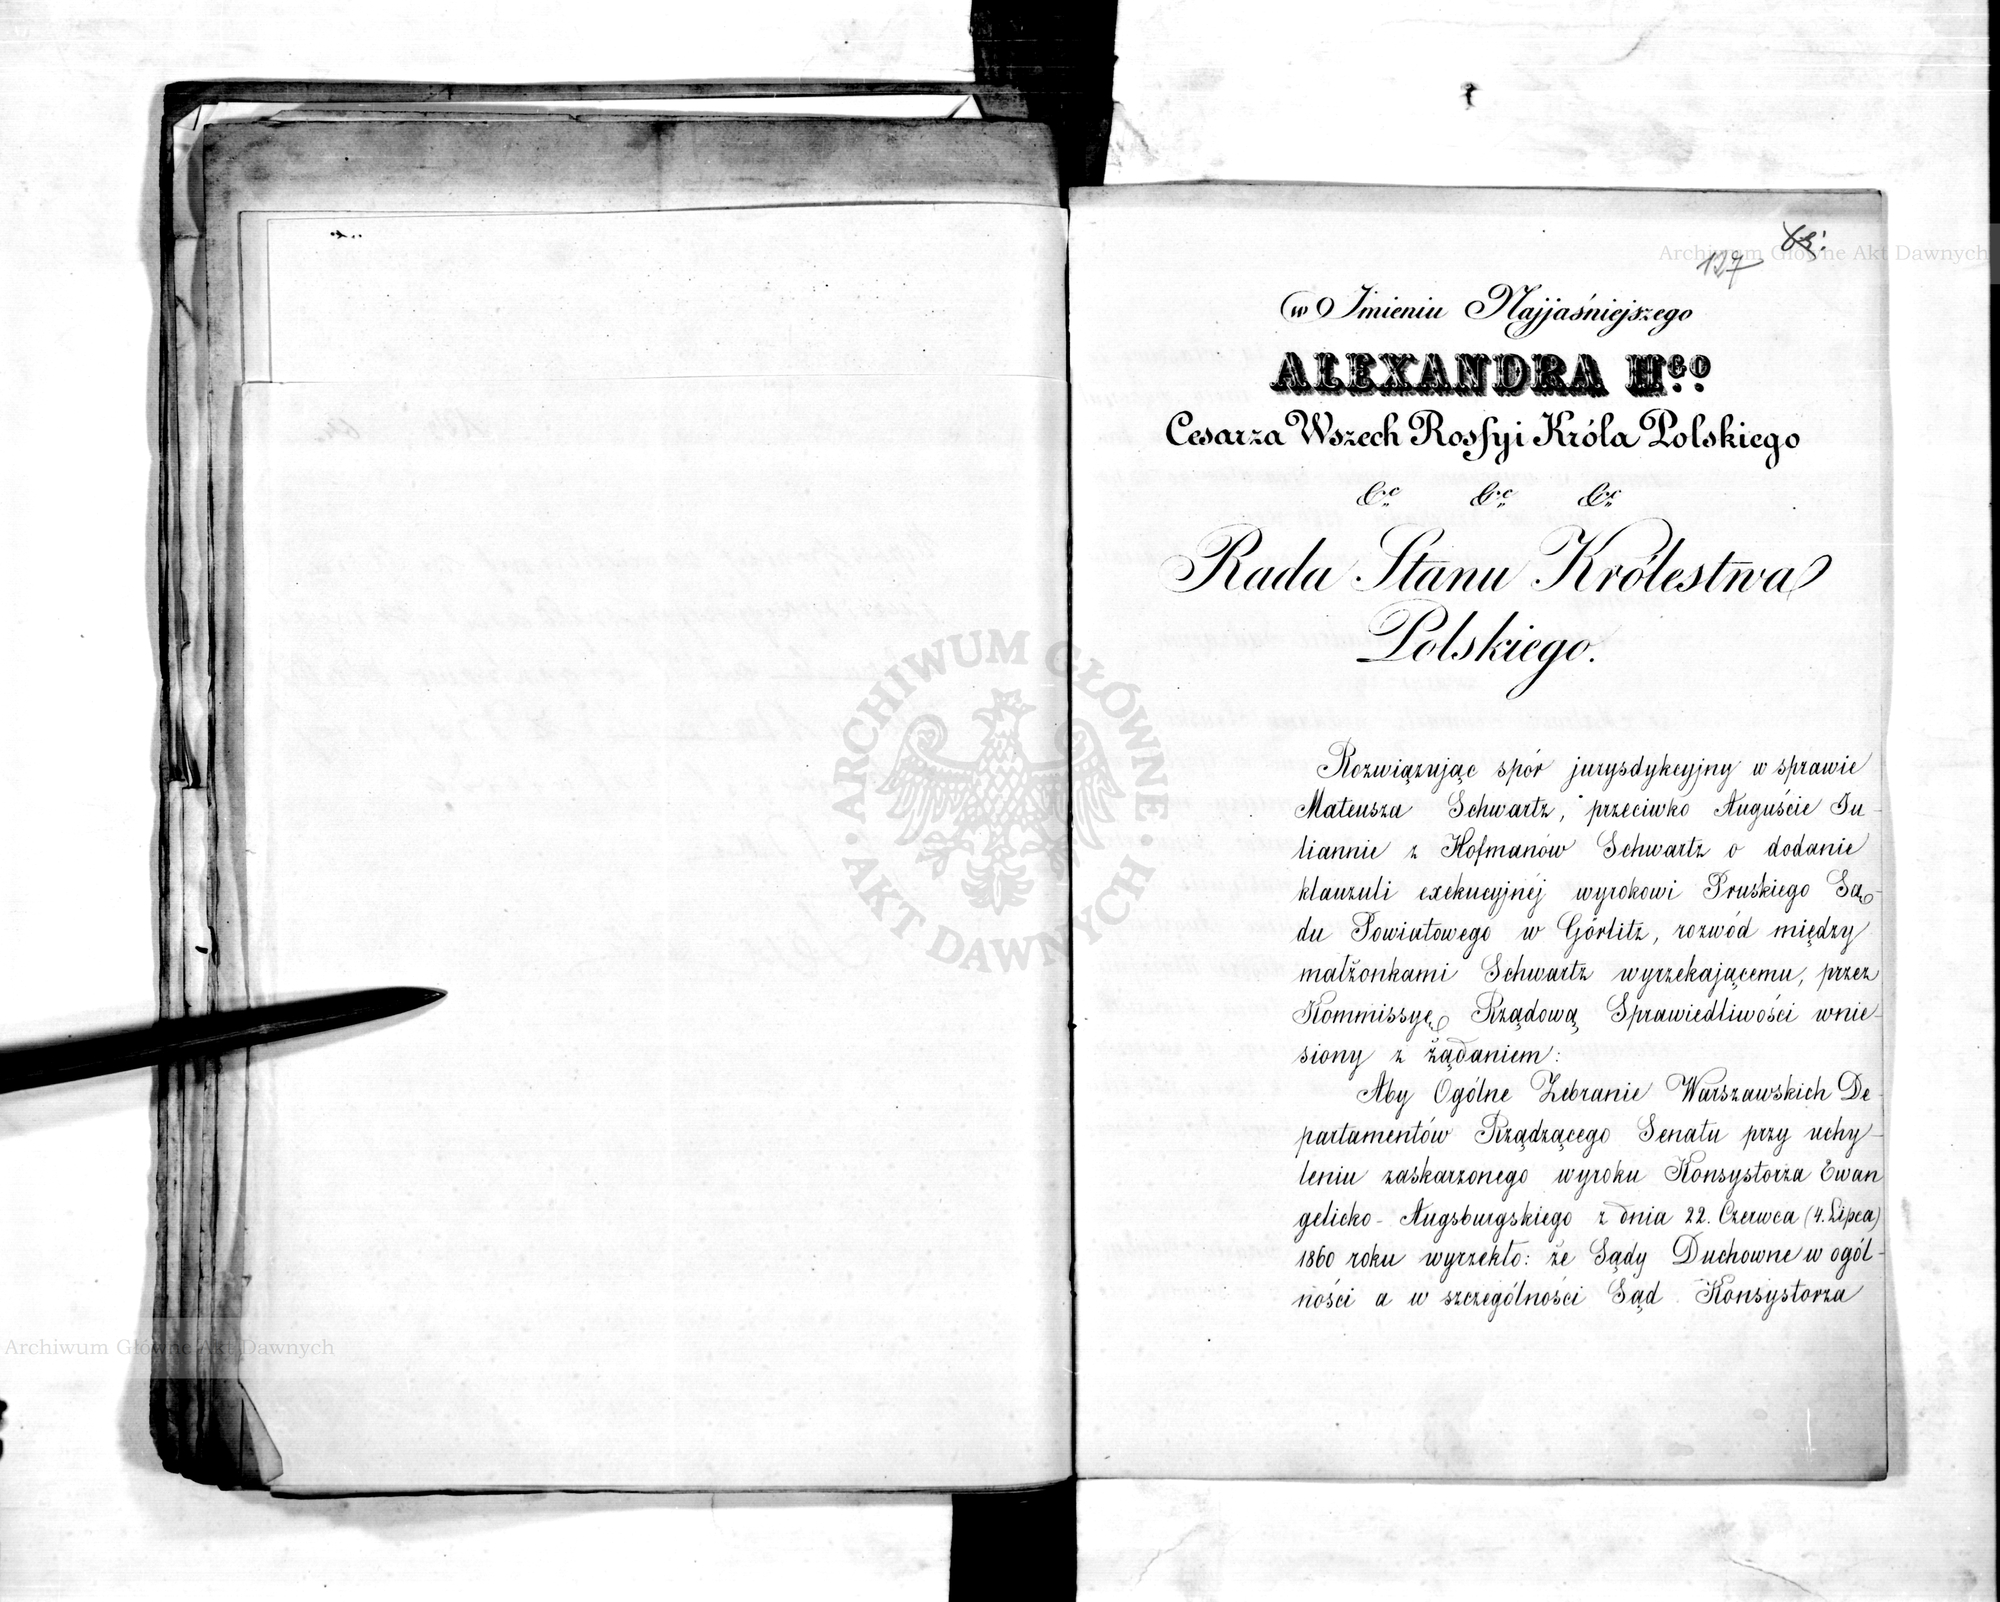 127
w Imieniu Najjaśniejszego
ALEXANDRA IIgo
Cesarza Wszech Rossyi Króla Polskiego
&c &c &c
Rada Stanu Królestwa
Polskiego.
Rozwiązując spór jurysdykcyjny w sprawie
Mateusza Schwartz, przeciwko Auguście Ju-
liannie z Hofmanów Schwartz o dodanie
klauzuli exekucyjnéj wyrokowi Pruskiego Są-
du Powiatowego w Görlitz, rozwód między
małżonkami Schwartz wyrzekającemu, przez
Kommissyę Rządową Sprawiedliwości wnie-
siony z żądaniem:
Aby Ogólne Zebranie Warszawskich De-
partamentów Rządzącego Senatu przy uchy-
leniu zaskarzonego wyroku Konsystorza Ewan
gelicko-Augsburgskiego z dnia 22. Czerwca (4. Lipca)
1860 roku wyrzekło: że Sądy Duchowne w ogól-
ności a w szczególności Sąd Konsystorza
ARCHIWUM GŁÓWNE
AKT DAWNYCH
Archiwum Główne Akt Dawnych
Archiwum Główne Akt Dawnych